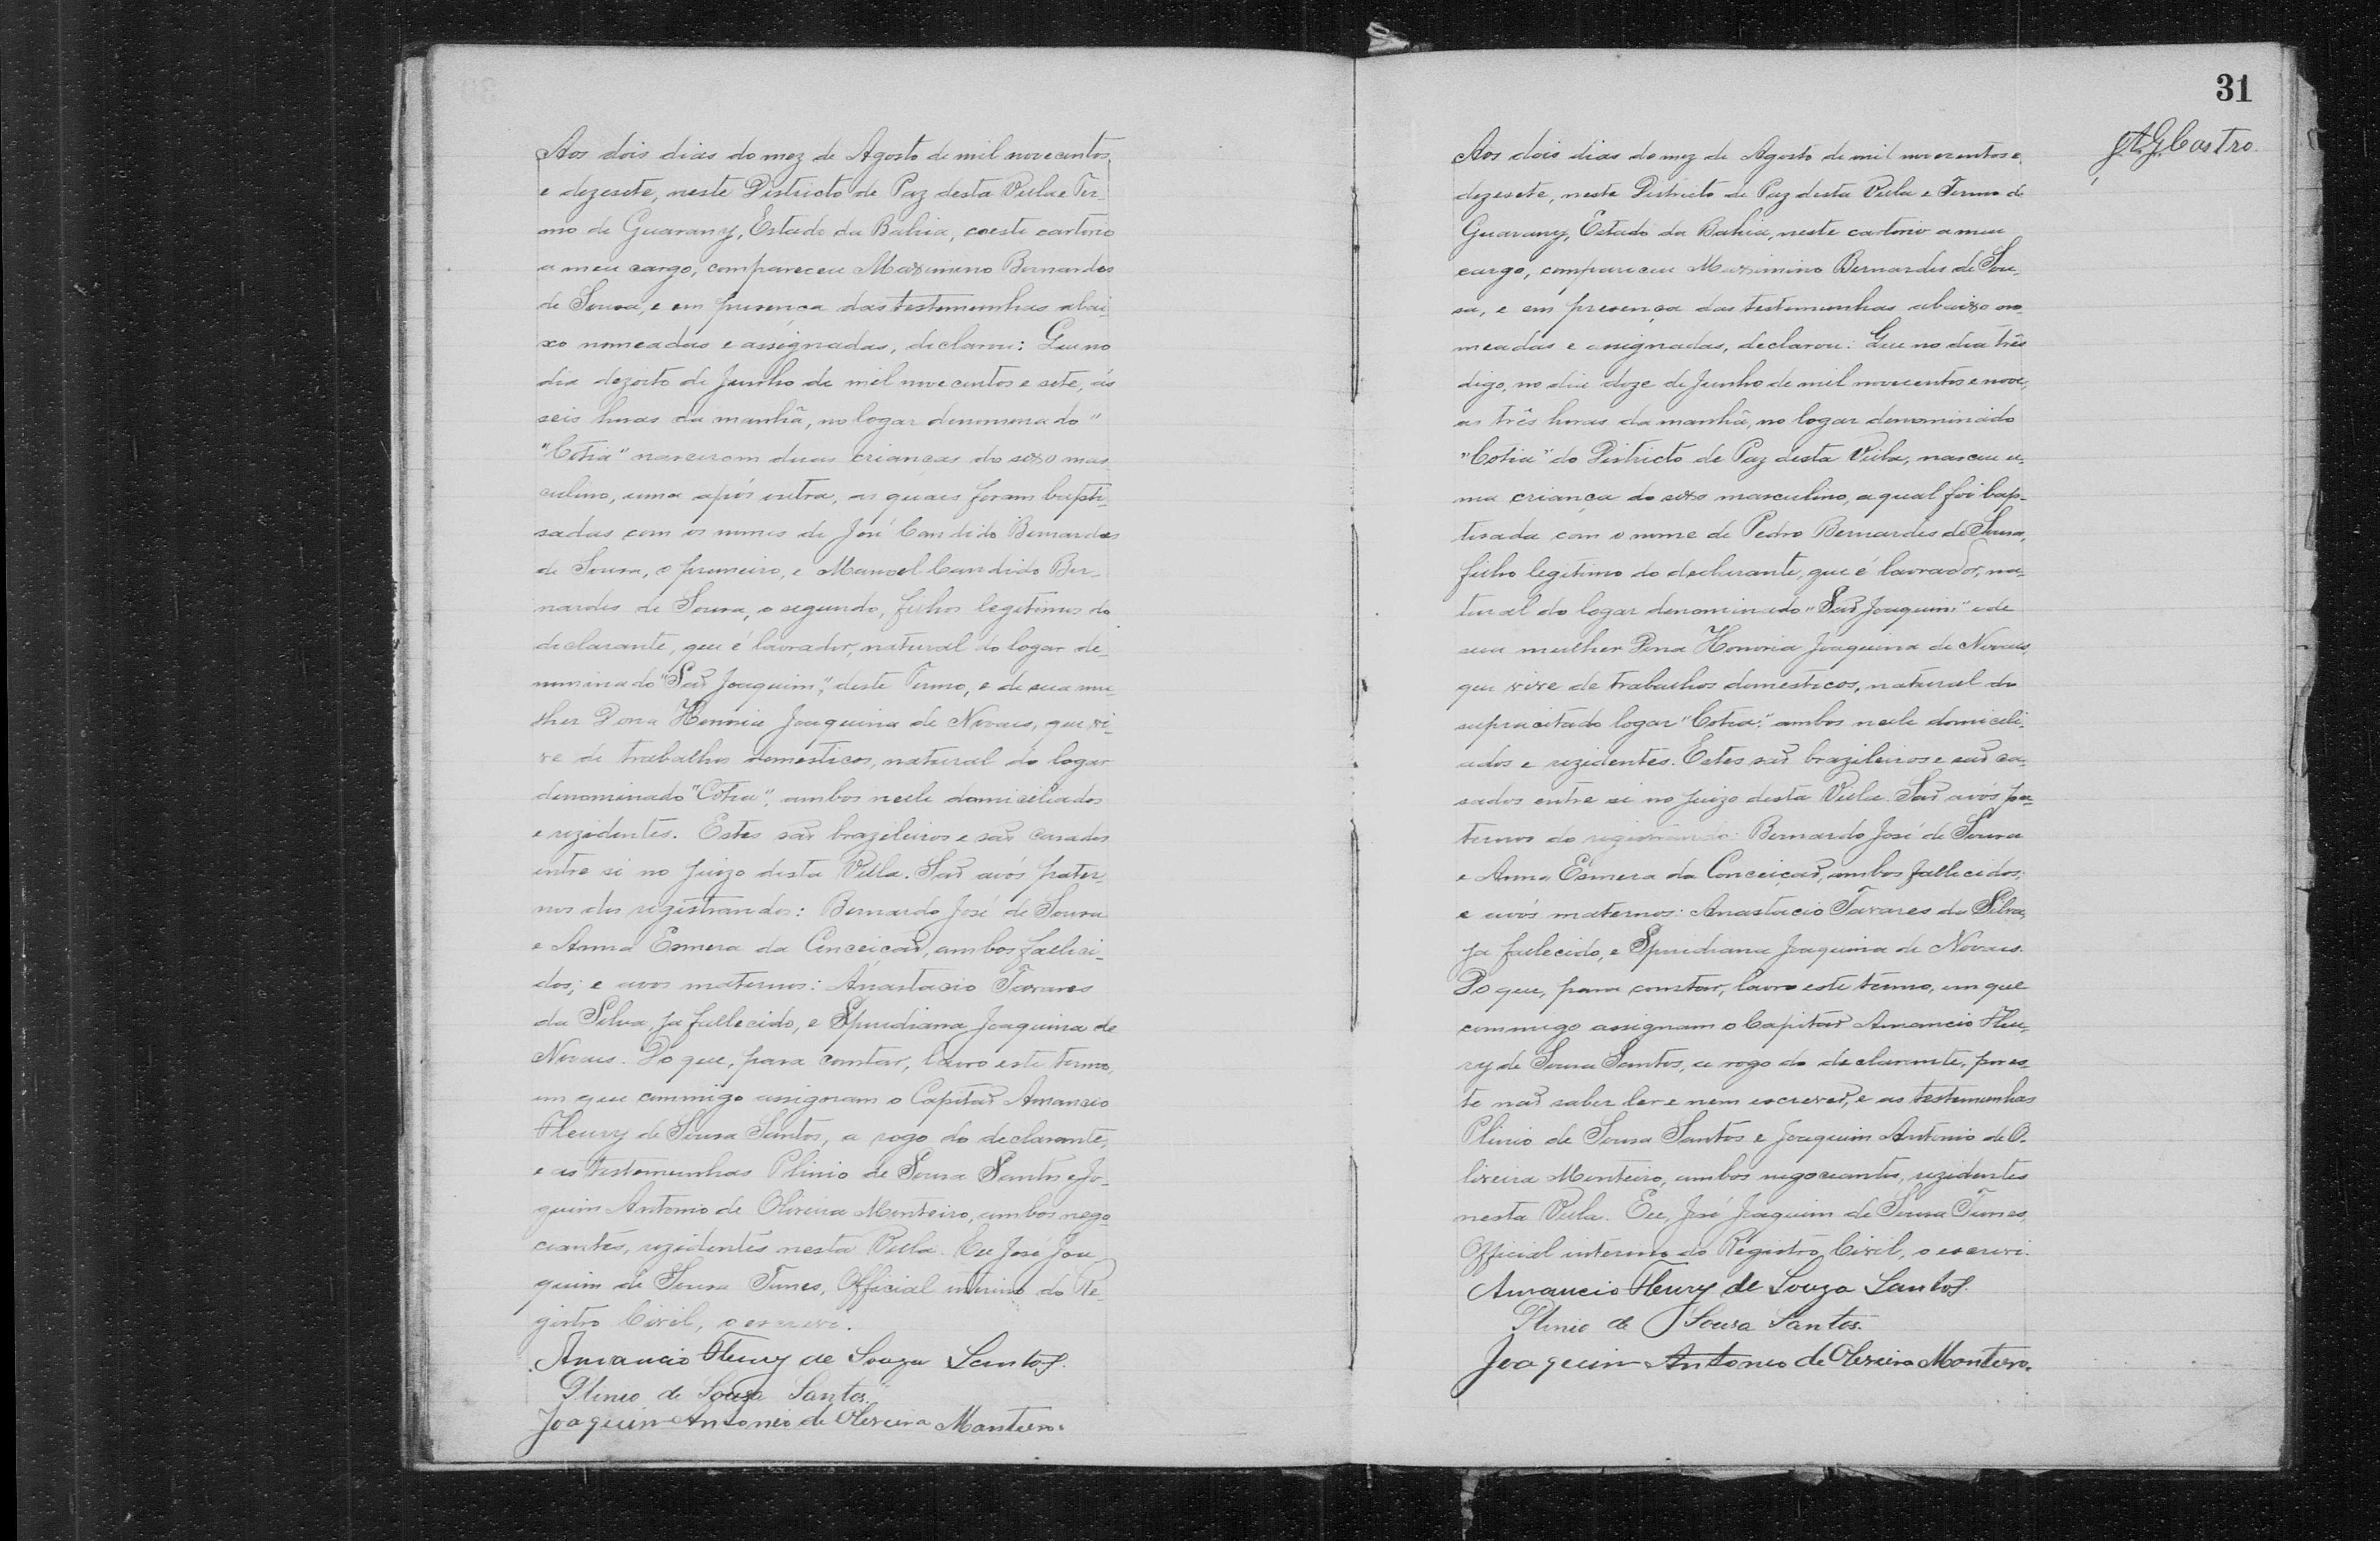 Aos dois dias do mez de Agosto de mil novecentos
e dezesete, neste Districto de Paz desta Villa e Ter-
mo de Guarany, Estado da Bahia, neste cartorio
a meu cargo, compareceu Maximino Bernardes
de Sousa, e em presença das testemunhas abai-
xo nomeadas e assignadas, declarou: Que no
dia dezoito de Junho de mil novecentos e sete, ás
seis horas da manhã, no logar denominado "
"Cotia" nasceram duas crianças do sexo mas-
culino, uma após outra, as quaes foram bapti-
sadas com os nomes de José Candido Bernardes
de Sousa, o primeiro, e Manoel Candido Ber-
nardes de Sousa, o segundo, filhos legitimos do
declarante, que é lavrador, natural do logar de-
nominado "São Joaquim", deste Termo, e de sua mu-
lher Dona Honoria Joaquina de Novaes, que vi-
ve de trabalhos domesticos, natural do logar
denominado "Cotia", ambos nelle domiciliados
e rezidentes. Estes são brazileiros e são casados
entre si no juizo desta Villa. São avós pater-
nos dos registrandos: Bernardo José de Sousa
e Anna Esmera da Conceição, ambos falleci-
dos; e avós maternos: Anastacio Tavares
da Silva, já fallecido, e Spiridiana Joaquina de
Novaes. Do que, para constar, lavro este termo,
em que commigo assignam o Capitão Amancio
Fleury de Sousa Santos, a rogo do declarante,
e as testemunhas Plinio de Sousa Santos e Jo-
quim Antonio de Oliveira Monteiro, ambos nego-
ciantes, rezidentes nesta Villa. Eu José Joa-
quim de Sousa Tunes, Official interino do Re-
gistro Civil, o escrevi.
Amancio Fleury de Souza Santos.
Plinio de Sousa Santos.
Joaquim Antonio de Oliveira Monteiro.
31
J.A.G. Castro
Aos dois dias do mez de Agosto de mil novecentos e
dezesete, neste Districto de Paz desta Villa e Termo de
Guarany, Estado da Bahia, neste cartorio a meu
cargo, compareceu Maximino Bernardes de Sou-
sa, e em presença das testemunhas abaixo no-
meadas e assignadas, declarou: Que no dia três
digo, no dia doze de Junho de mil novecentos e nove,
as três horas da manhã, no logar denominado
"Cotia" do Districto de Paz desta Villa, nasceu u-
ma criança do sexo masculino, a qual foi bap-
tisada com o nome de Pedro Bernardes de Sousa,
filho legitimo do declarante, que é lavrador, na-
tural do logar denominado "São Joaquim" e de
sua mulher Dona Honoria Joaquina de Novaes,
que vive de trabalhos domesticos, natural do
supracitado logar "Cotia": ambos nelle domicili-
ados e rezidentes. Estes são brazileiros e são ca-
sados entre si no juizo desta Villa. São avós pa-
ternos do registrando: Bernardo José de Sousa
e Anna Esmera da Conceição, ambos fallecidos;
e avós maternos: Anastacio Tavares da Silva,
já fallecido, e Spiridiana Joaquina de Novaes.
Do que, para constar, lavro este termo, em que
commigo assignam o Capitão Amancio Fleu-
ry de Sousa Santos, a rogo do declarante, por es-
te não saber ler e nem escrever, e as testemunhas
Plinio de Sousa Santos e Joaquim Antonio de O-
liveira Monteiro, ambos negociantes, rezidentes
nesta Villa. Eu, José Joaquim de Sousa Tunes,
Official interino do Registro Civil, o escrevi.
Amancio Fleury de Souza Santos.
Plinio de Sousa Santos.
Joaquim Antonio de Oliveira Monteiro.